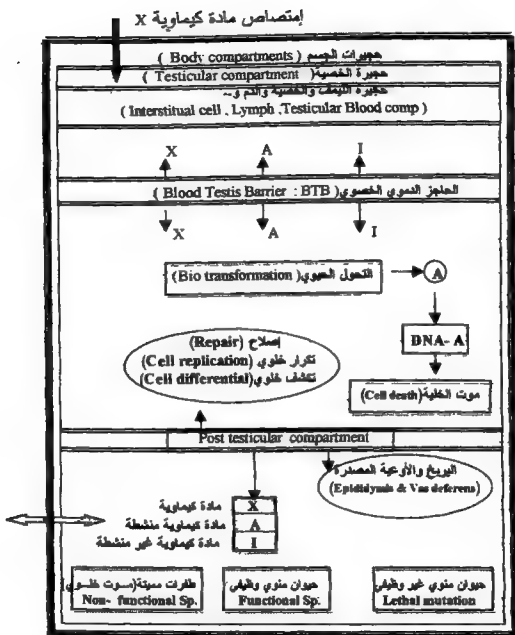 إمتصاص مادة كيماوية X
حجيرات الجسم (Body compartments)
حجيرة الخصية (Testicular compartment)
حجيره الليمف والخصية والدم و--
(Interstitual cell , Lymph ,Testicular Blood comp)
X A I
الحاجز الدموي الخصوي (Blood Testis Barrier : BTB)
X A I
التحول الحيوي (Bio transformation) A
DNA- A
إصلاح (Repair)
تكرار خلوي (Cell replication)
تكشف خلوي (Cell differential)
موت الخلية (Cell death)
Post testicular compartment
البربخ والأوعية المصدرة
(Epididymis & Vas deferens)
مادة كيماوية X
مادة كيماوية منشطة A
مادة كيماوية غير منشطة I
طفرات مميتة (موت خلوي)
Non- functional Sp.
حيوان منوي وظيفي
Functional Sp.
حيوان منوي غير وظيفي
Lethal mutation